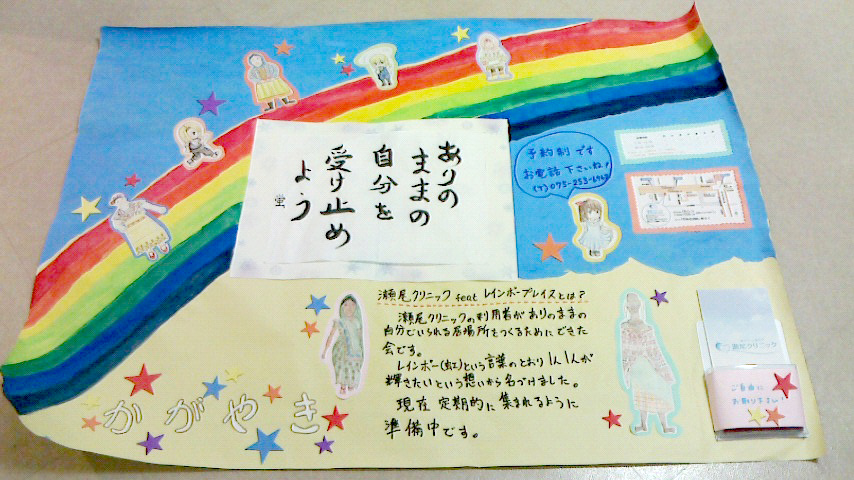 ありの
ままの
自分を
受け止め
よう
蛍
予約制です
お電話下さいね！
瀬尾クリニック feat レインボープレイスとは？
瀬尾クリニックの利用者がありのままの
自分でいられる居場所をつくるためにできた
会です。
レインボー(虹)という言葉のとおり1人1人が
輝きたいという想いから名づけました。
現在 定期的に 集まれるように
準備中です。
かがやき
瀬尾クリニック
ご自由に
お取り下さい！